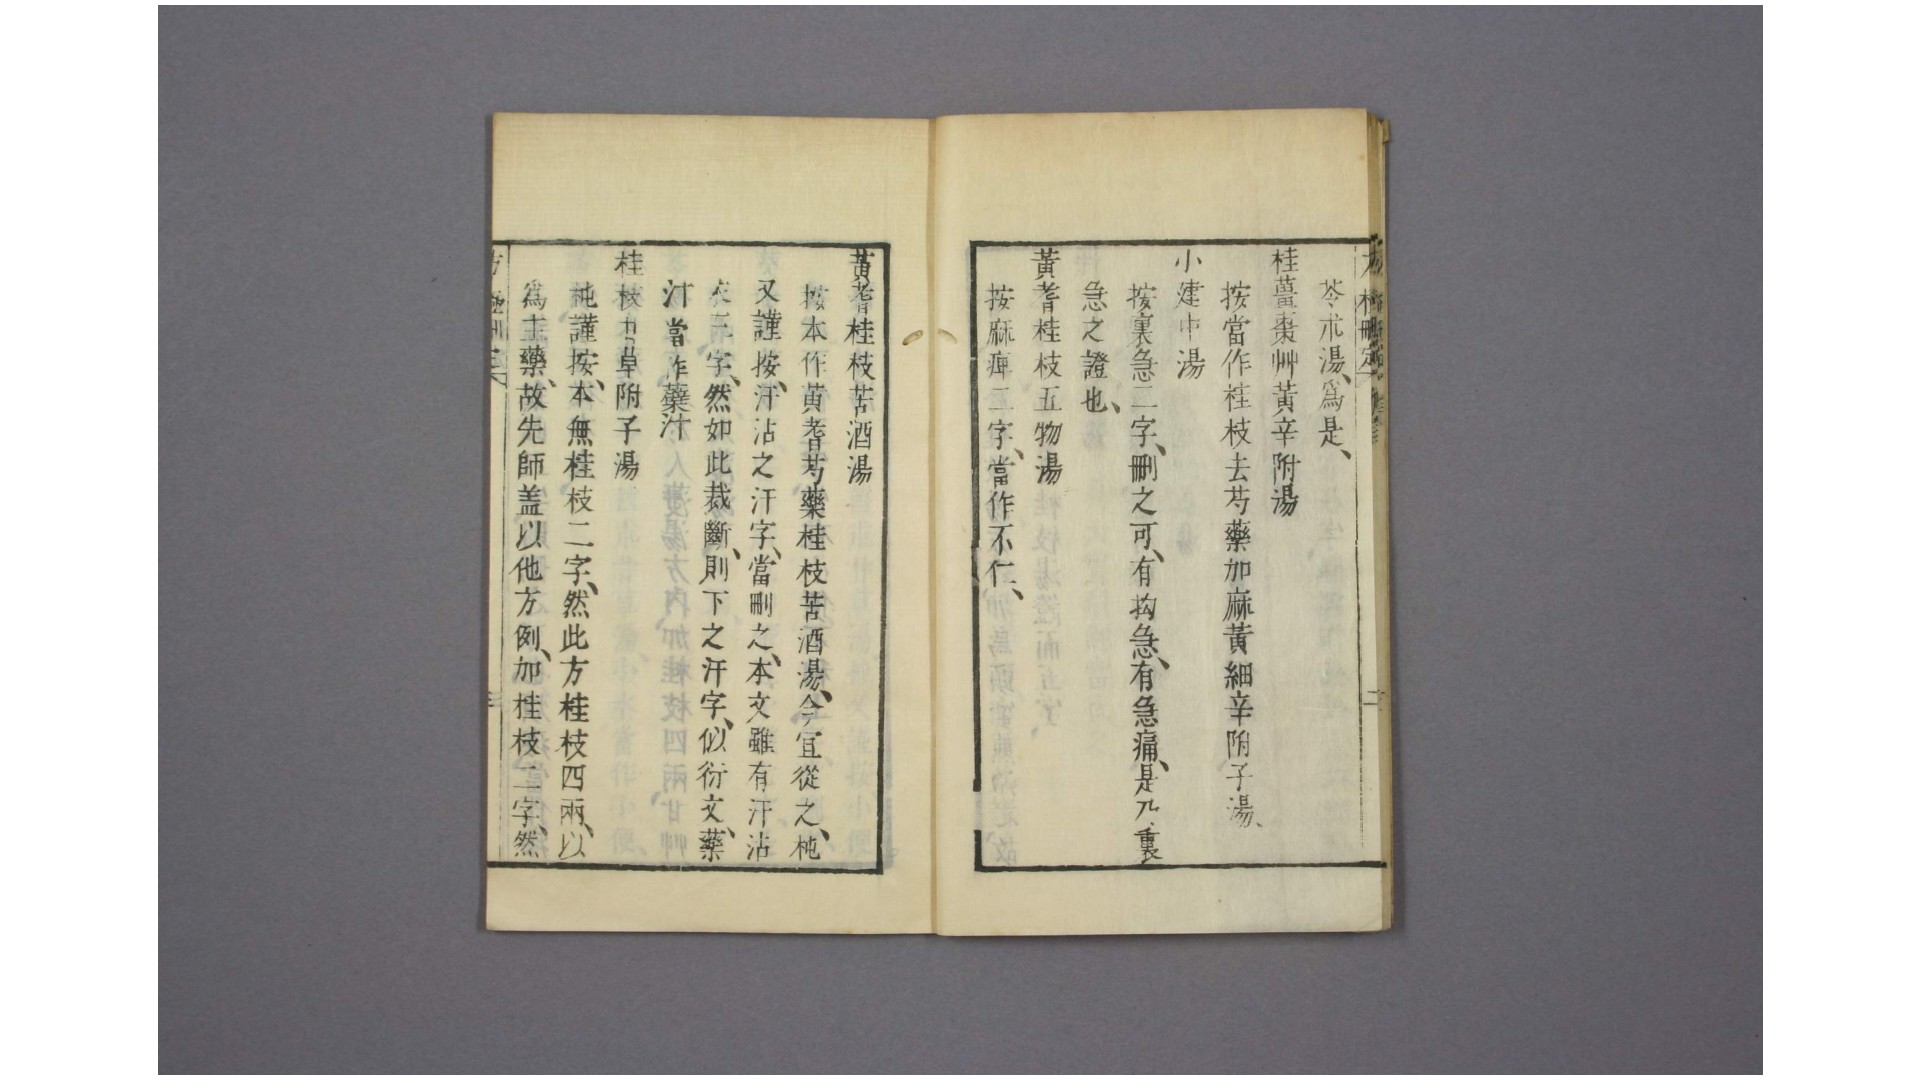 苓朮湯、爲是、
桂薑棗艸黃辛附湯
按當作桂枝去芍藥加麻黃細辛附子湯、
小建中湯
按裏急二字、刪之可、有拘急、有急痛、是乃裏
急之證也、
黃耆桂枝五物湯
按麻痺二字、當作不仁、
黃耆桂枝苦酒湯
按本作黃耆芍藥桂枝苦酒湯、今宜從之、杶
又謹按、汗沾之汗字、當刪之、本文雖有汗沾
衣三字、然如此裁斷、則下之汗字、似衍文、藥
汁當作藥汁
桂枝甘草附子湯
杶謹按、本無桂枝二字、然此方桂枝四兩、以
爲主藥、故先師盖以他方例、加桂枝二字、然